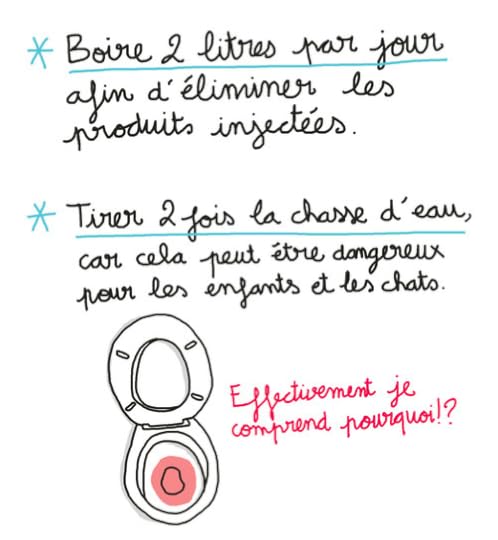 * Boire 2 litres par jour
afin d'éliminer les
produits injectées.
* Tirer 2 fois la chasse d'eau,
car cela peut être dangereux
pour les enfants et les chats.
Effectivement je
comprend pourquoi!?